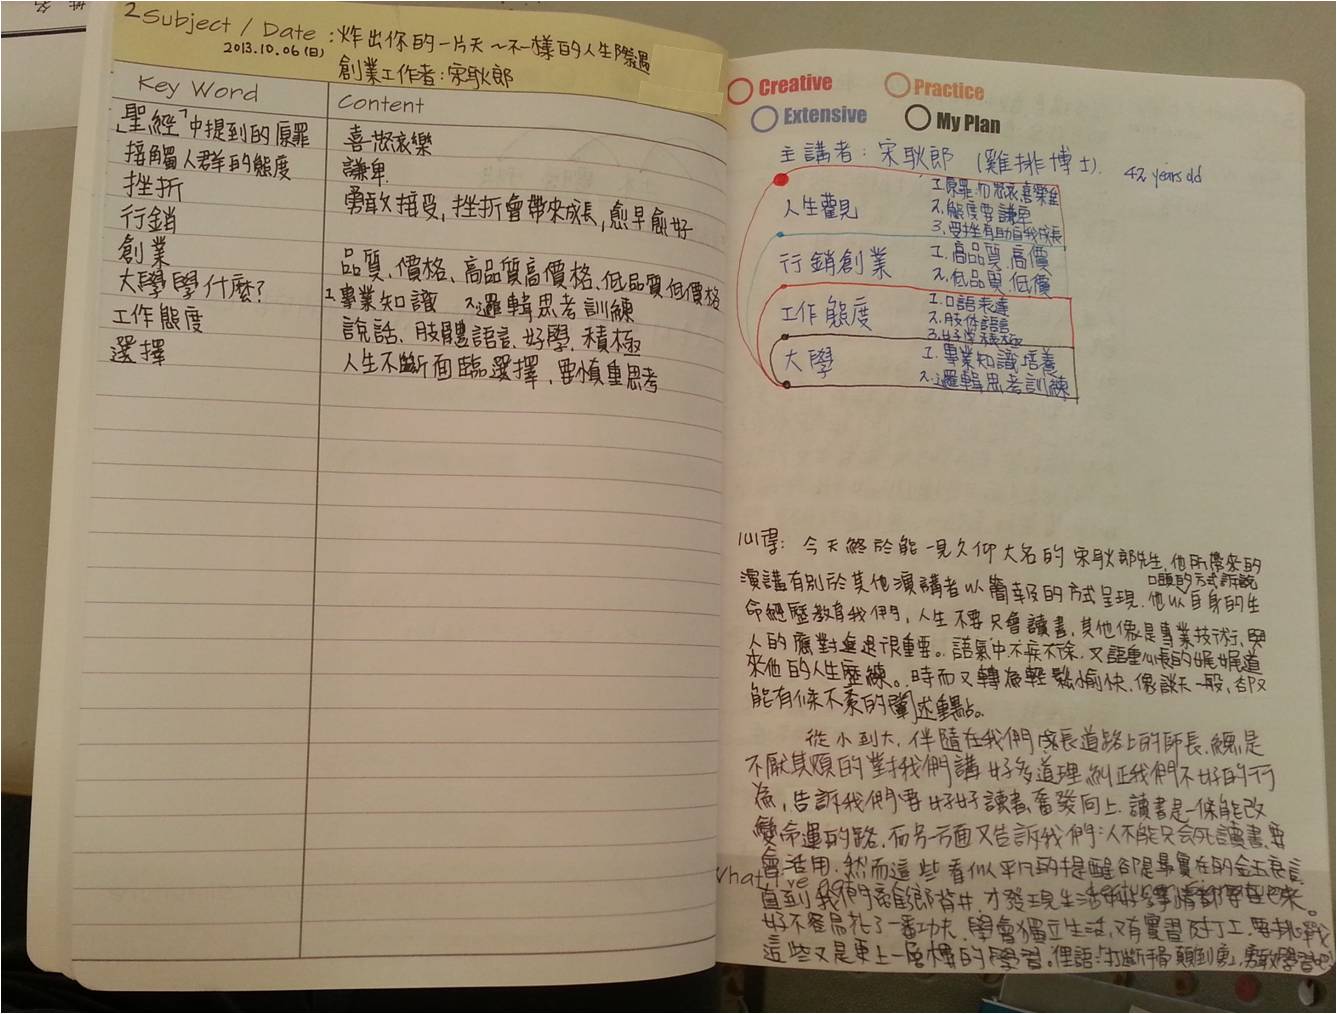 2 Subject / Date : 炸出你的一片天～不一樣的人生際遇
2013.10.06 (日)
創業工作者：宋耿郎
Key Word
Content
「聖經」中提到的原罪
喜怒哀樂
接觸人群的態度
謙卑
挫折
勇敢接受，挫折會帶來成長，愈早愈好
行銷
創業
品質、價格、高品質高價格、低品質低價格
大學學什麼？
1.專業知識 2.邏輯思考訓練
工作態度
說話、肢體語言、好學、積極
選擇
人生不斷面臨選擇，要慎重思考
Creative
Practice
Extensive
My Plan
主講者：宋耿郎 (雞排博士). 42 years old
人生觀見
1.原罪:勿怒哀喜樂
2.態度要謙卑
3.受挫有助自我成長
行銷創業
1.高品質.高價
2.低品質.低價
工作態度
1.口語表達
2.肢体語言
3.好學積極
大學
1.專業知識培養
2.邏輯思考訓練
心得：今天終於能一見久仰大名的宋耿郎先生，他所帶來的
演講有別於其他演講者以簡報的方式呈現，他以自身的生
口頭的方式訴說
命經歷教育我們，人生不要只會讀書，其他像是專業技術、與
人的應對進退很重要。語氣中不疾不徐，又語重心長的娓娓道
來他的人生歷練。時而又轉為輕鬆愉快，像談天一般，卻又
能有條不紊的闡述重點。
從小到大，伴隨在我們成長道路上的師長，總是
不厭其煩的對我們講好多道理，糾正我們不好的行
為，告訴我們要好好讀書、奮發向上，讀書是一條能改
變命運的路，而另一方面又告訴我們：人不能只会死讀書，要
會活用，然而這些看似平凡的提醒卻是最實在的金玉良言
What I've
直到我們離鄉背井，才發現生活中好多事情都要自己來。
好不容易扎了一番功夫，學會獨立生活，又有實習及打工，要挑戰
這些又是更上一層樓的學習。俚語：「打斷手骨顛倒勇」，勇敢學習吧